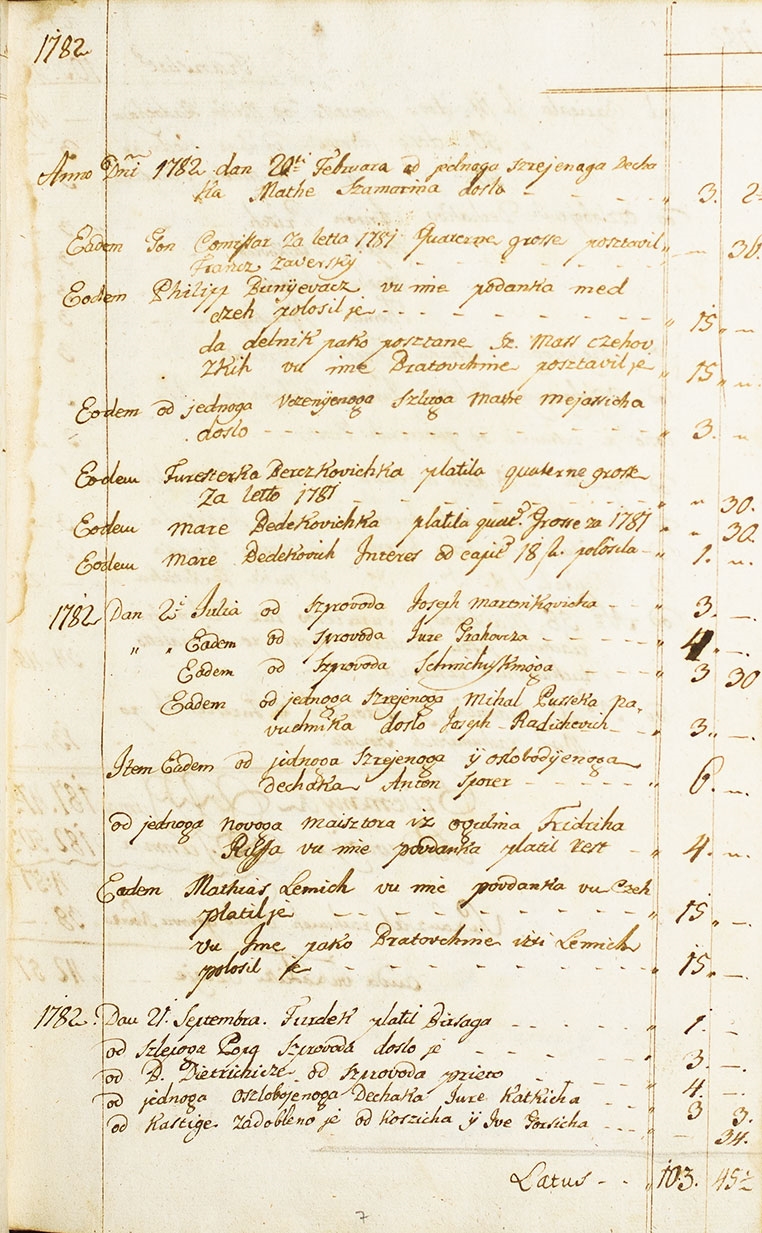 1782
Anno Dni 1782 dan 20ti Februara od jednoga szrejenaga Decha
ka Mathe Szamarina doslo - - " 3. 2
Eadem Gon Comissar za letta 1781 Quaterne grosse posztavil " — 30.
Francz Zaversky - - - -
Eodem Philipp Bunyevacz vu nie podanka med
czeh polosil je - - - - " 15 " —
da delnik pako posztane Sz. Mass czehov
zkih vu ime Bratovchine posztavil je " 15 " —
Eodem od jednoga szluga Mathe Mejassicha
doslo - - - - " 3. —
Eodem Berczkovichka platila quaterne grosse
za letto 1781 - - - - " " 30.
Eodem Mare Dedekovichka platila quat. Grosse za 1781 " " 30.
Eodem Mare Dedekovich Interes od capit. 18 f. polosila - " 1. —
1782 Dan 2i Julia od szprovoda Joseph Martinkovicha - - " 3. —
" " Eadem od sprovoda Jure Grahovcza - - - " 4. —
Eodem od szprovoda - - - " 3 30
Eadem od jednoga szrejenoga Mihal Pusseka pa-
vuchnika doslo Joseph Radichevich - " 3. —
Item Eadem od jednoga szrejenoga ÿ oslobodÿenoga
dechaka Anton Sporer - - - " 6. —
od jednoga novoga maisztora iz ogulina Fridriha
vu nie povdanka platil rest - " 4. —
Eadem Mathias Lemich vu nie povdanka vu Czeh
platil je - - - - " 15 " —
vu Ime pako Bratovchine isti Lemich
polosil je - - - - " 15 " —
1782. Dan 21. Septembra. Furdek platil Birsaga - - - " 1. —
od szprovoda doslo je - - - " 3. —
od D. Dietrichicze od szprovoda prieto - - " 4. —
od jednoga oszlobojenoga Dechaka Jure Katkicha " 3 3.
od Kastige zadobleno je od Koszicha ÿ Ive Gorsicha - - " — 34.
Latus - - " 103. 45½
7